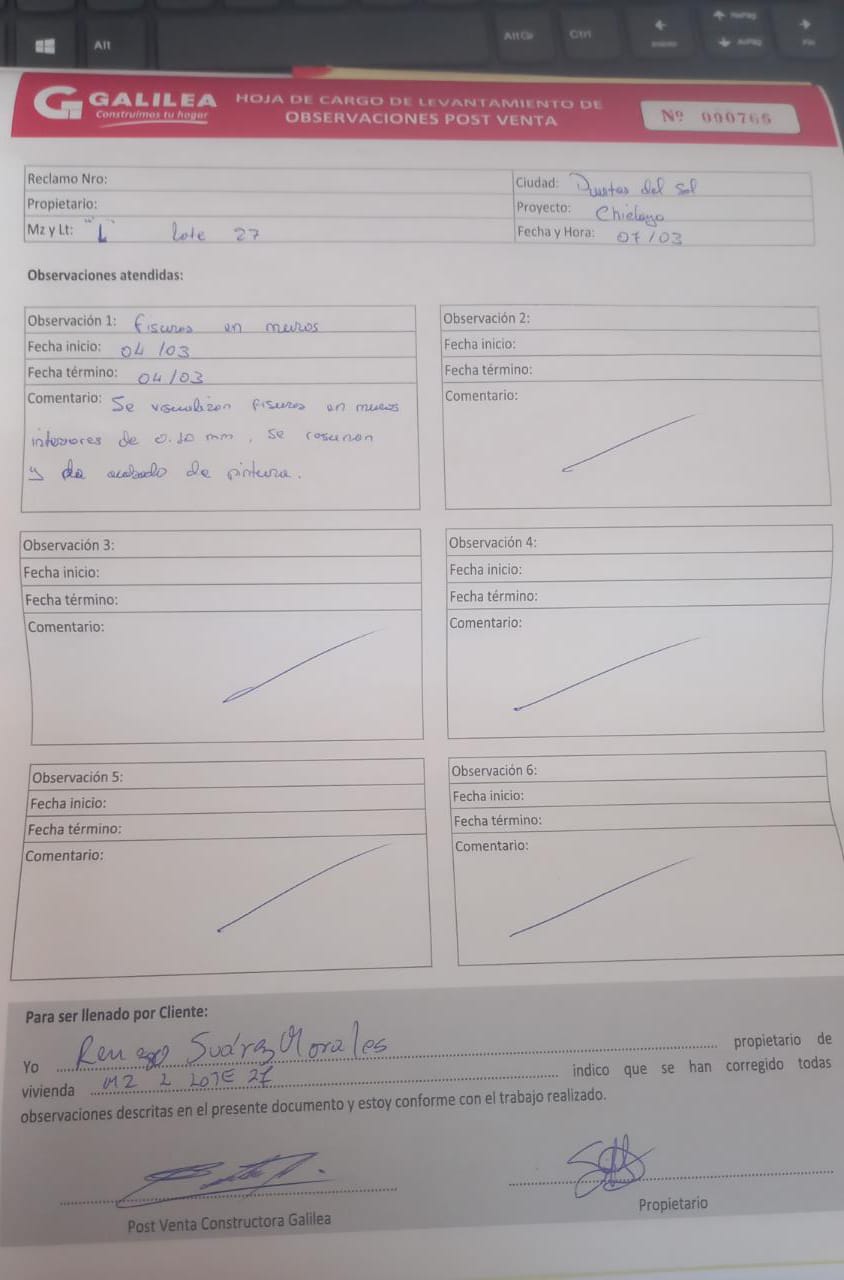 Alt
Alt Gr
Ctrl
GALILEA
Construimos tu hogar
HOJA DE CARGO DE LEVANTAMIENTO DE
OBSERVACIONES POST VENTA
Nº 000766
Reclamo Nro:
Ciudad: Puertas del Sol
Propietario:
Proyecto: Chiclayo
Mz y Lt: "L" Lote 27
Fecha y Hora: 07/03
Observaciones atendidas:
Observación 1: fisuras en muros
Fecha inicio: 04/03
Fecha término: 04/03
Comentario: Se visualizan fisuras en muros
interiores de 0.20 mm, se resanan
y da acabado de pintura.
Observación 2:
Fecha inicio:
Fecha término:
Comentario:
Observación 3:
Fecha inicio:
Fecha término:
Comentario:
Observación 4:
Fecha inicio:
Fecha término:
Comentario:
Observación 5:
Fecha inicio:
Fecha término:
Comentario:
Observación 6:
Fecha inicio:
Fecha término:
Comentario:
Para ser llenado por Cliente:
Yo Renzo Suárez Morales propietario de
vivienda MZ L LOTE 27 indico que se han corregido todas
observaciones descritas en el presente documento y estoy conforme con el trabajo realizado.
Post Venta Constructora Galilea
Propietario